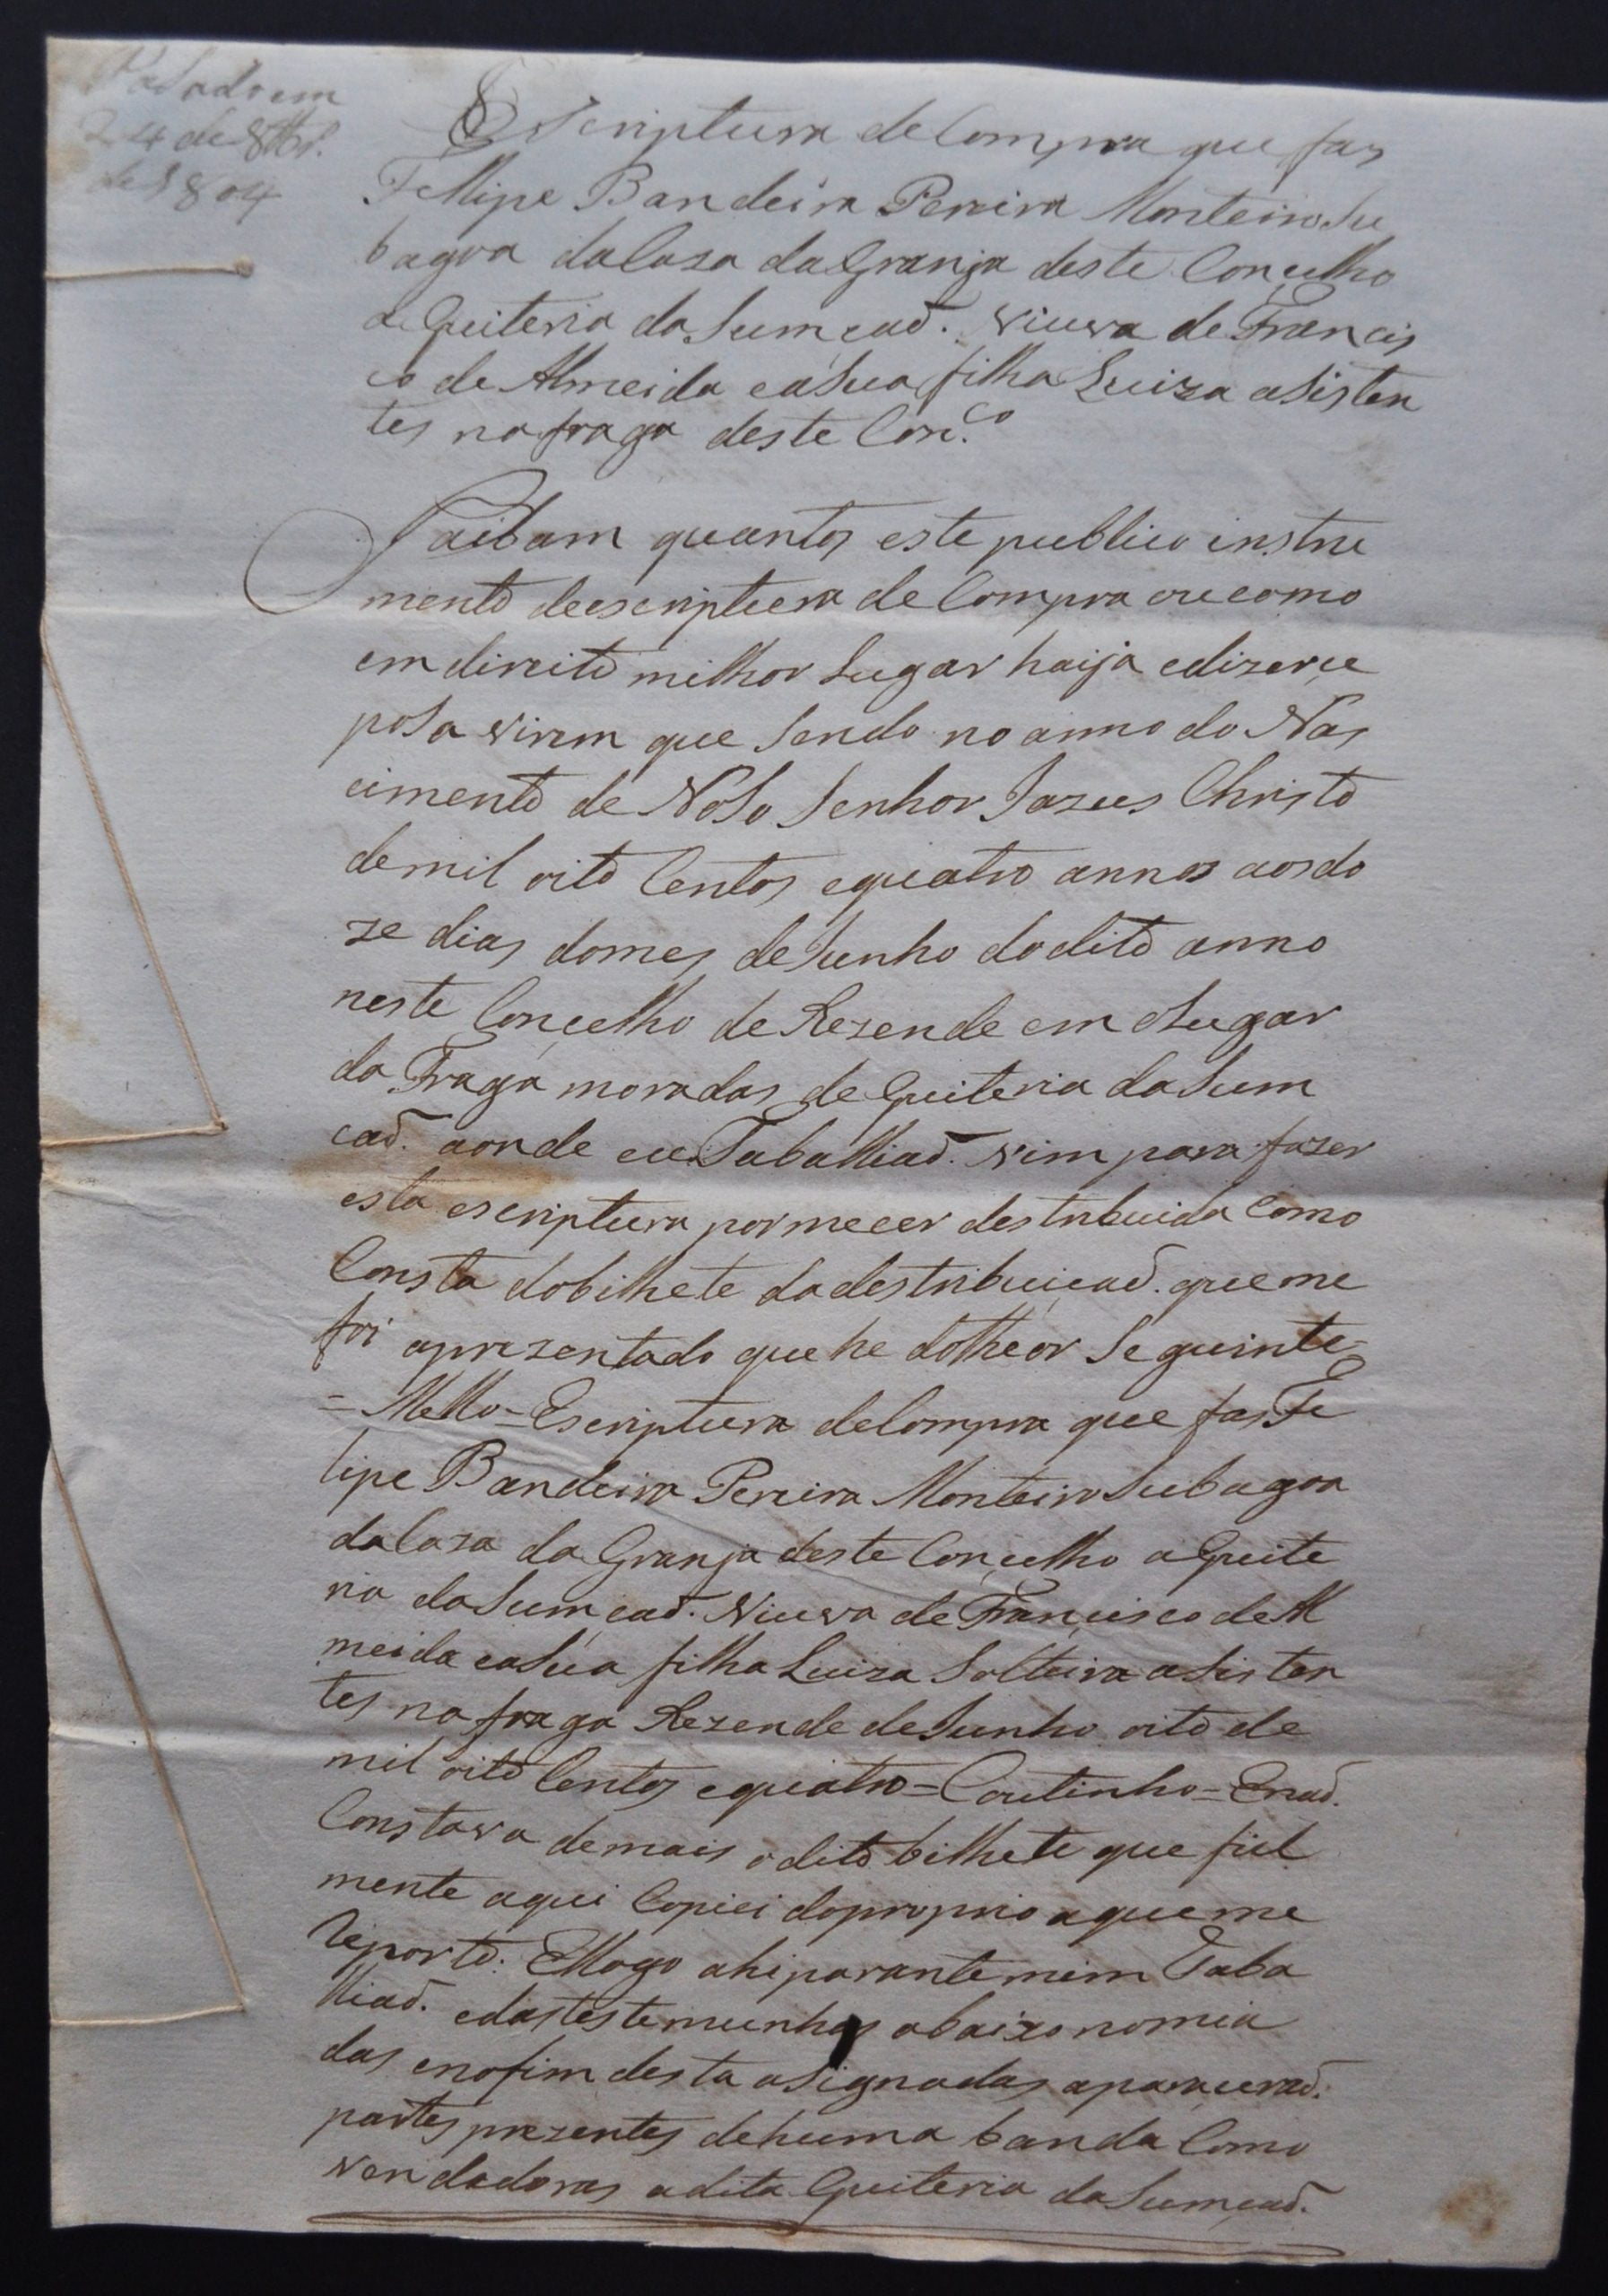 Pasado em
24 de 8br.
de 1804
Escriptura de Compra que fas
Fellipe Bandeira Pereira Monteiro Su
bagoa da Caza da Granja deste Conçelho
a Quiteria da Sumçaõ. viuva de Francis
co de Almeida e a Sua filha Luiza asisten
tes na fraga deste Conc.º
Saibam quantos este publico instru
mento de escriptura de Compra ou como
em direito milhor Lugar haija e dizer se
posa virem que Sendo no anno do Nas
cimento de Noso Senhor Jazus Christo
de mil oito Centos e quatro annos aos do
ze dias do mes de Junho do dito anno
neste Conçelho de Rezende em o Lugar
da Fraga moradas de Quiteria da Sum
çaõ. aonde eu Taballiaõ. vim para fazer
esta escriptura por me ser destribuida Como
Consta do bilhete da destribuiçaõ. que me
foi aprezentado que he do theor Seguinte =
= Mello = Escriptura de Compra que fas Fe
lipe Bandeira Pereira Monteiro Subagoa
da Caza da Granja deste Conçelho a Quite
ria da Sumçaõ. Viuva de Françisco de Al
meida e a Sua filha Luiza Solteira asisten
tes na fraga Rezende de Junho oito de
mil oito Centos e quatro = Coutinho = E naõ.
Constava de mais o dito bilhete que fiel
mente aqui Copiei do proprio a que me
reporto. E llogo ahi parante mim Taba
lliaõ. e das testemunhas abaixo nomia
das e no fim desta asignadas aparaceraõ.
partes prezentes de huma banda Como
vendadoras a dita Quiteria da Sumçaõ.